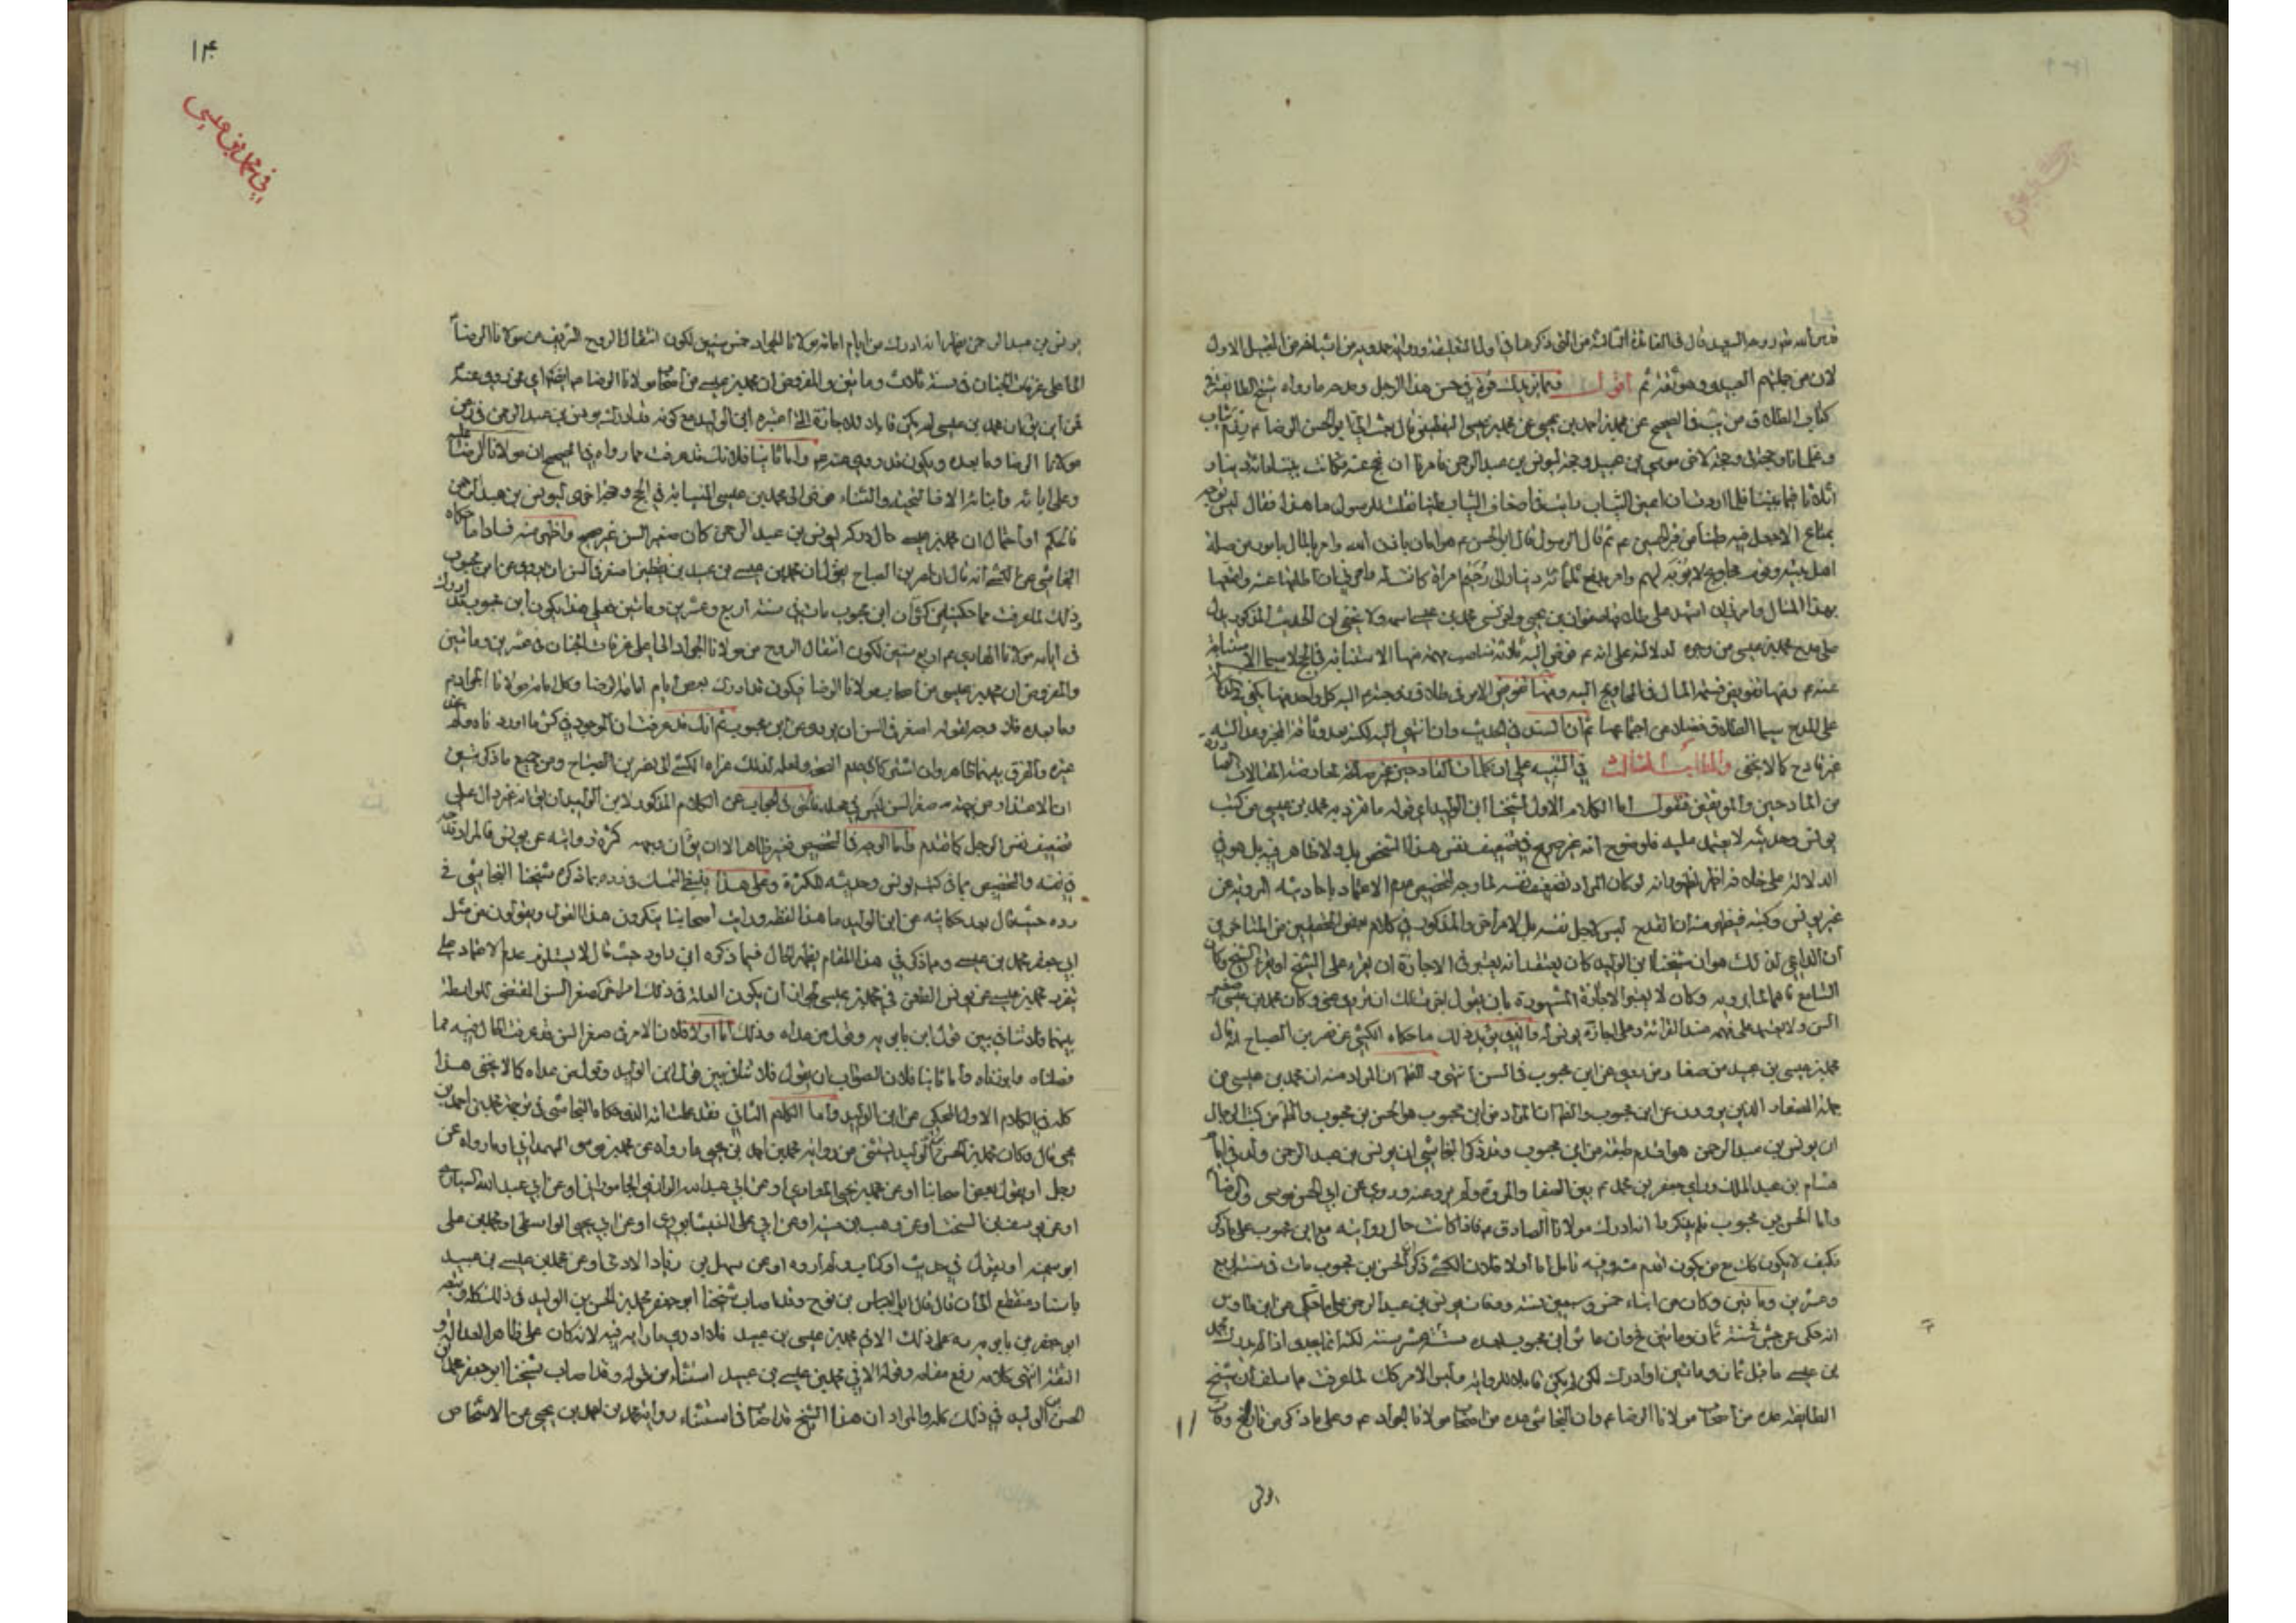 قدس الله روحه السعيد قال في الفائدة الثالثة من التي ذكرها في
لان من جملتهم العبيدي وهو ثقة ثم اقول ومما يزيدك قوة في حسن هذا الرجل ومدحه ما رواه شيخ الطائفة في
كتاب الطلاق من في الصحيح عن محمد بن احمد بن يحيى عن محمد بن عيسى اليقطيني قال بعث الي ابو الحسن الرضا ع رزم ثياب
وغلمانا وحجة لي وحجة لاخي موسى بن عبيد وحجة ليونس بن عبد الرحمن فامرنا ان نحج عنه فكانت بيننا مائة دينار
اثلاثا فيما بيننا فلما اردت ان اعبي الثياب رايت في اضعاف الثياب طينا فقلت للرسول ما هذا فقال ليس يوجه
بمتاع الا جعل فيه طينا من قبر الحسين ع ثم قال الرسول قال ابو الحسن ع هو امان باذن الله وامر بالمال بامور من صلة
اهل بيته وقوم محاويج لا يؤبه لهم وامر بدفع ثلثمائة دينار الى رحيم امراة كانت له وامرني ان اطلقها عنه وامتعها
بهذا المال وامرني ان اشهد على طلاقها صفوان بن يحيى واخر نسي محمد بن عيسى اسمه ولا يخفى ان الحديث المذكور يدل
على مدح محمد بن عيسى من وجوه لدلالته على انه ع فوض اليه ثلاثة مناصب مهمة منها الاستنابة في الحج لا سيما
عنه ع ومنها تفويض قسمة المال في المحاويج اليه ومنها تفويض الامر في طلاق زوجته ع اليه كل واحد منها يكفي
على المدح سيما الطلاق فضلا عن اجتماعها ثم ان السند في الحديث وان انتهى اليه لكنه
غير قادح كما لا يخفى والمطلب الثالث في التنبيه على ان كلمات القادحين غير صالحة لمعارضة المقالات الصادرة
من المادحين والموثقين فنقول اما الكلام الاول لشيخنا ابن الوليد اي قوله ما تفرد به محمد بن عيسى من كتب
يونس وحديثه لا يعتمد عليه فلوضوح انه غير صريح في تضعيف نفس هذا الشخص بل ولا ظاهر فيه بل هو في
الدلالة على خلافه اظهر لظهور انه لو كان المراد تضعيف نفسه لما وجه لتخصيص عدم الاعتماد باحاديثه المروية عن
غير يونس وكتبه فيظهر منه ان القدح ليس لاجل نفسه بل لامر اخر والمذكور في كلام بعض المحققين من المتاخرين
ان الداعي لذلك هو ان شيخنا ابن الوليد كان يعتقد انه يعتبر في الاجازة ان يقرء على الشيخ او يقرء الشيخ وكان
السامع فاهما لما يرويه وكان لا يعتبر الاجازة المشهورة بان يقول اجزت لك ان تروي عني وكان محمد بن عيسى صغير
السن ولا يعتمد على فهمه عند القرائة ولا على اجازة يونس له والذي يؤيد ذلك ما حكاه الكشي عن نصر بن الصباح انه قال
محمد بن عيسى بن عبيد من صغار من يروي عن ابن محبوب في السن انتهى والظ ان المراد منه ان محمد بن عيسى من
جملة الصغار الذين يروون عن ابن محبوب والظ ان المراد من ابن محبوب هو الحسن بن محبوب والظ من كتب الرجال
ان يونس بن عبد الرحمن هو اقدم طبقة من ابن محبوب وقد ذكر النجاشي ان يونس بن عبد الرحمن ولد في ايام
هشام بن عبد الملك وراى جعفر بن محمد ع بين الصفا والمروة ولم يرو عنه وروى عن ابي الحسن موسى والرضا
واما الحسن بن محبوب فلم يذكروا انه ادرك مولانا الصادق ع فاذا كانت حال روايته مع ابن محبوب على ما ذكر
فكيف لا يكون كك مع من يكون اقدم منه وفيه تامل اما اولا فلان الكشي ذكر ان الحسن بن محبوب مات في سنة اربع
وعشرين ومائتين وكان من ابناء خمس وسبعين سنة ومات يونس بن عبد الرحمن على ما حكي عن ابن طاوس
انه حكى عن سنة ثمان ومائتين فح وان عاش ابن محبوب بعده ستة عشر سنة لكنه انما يجدي اذا لم يدرك محمد
بن عيسى ما قبل ثمان ومائتين او ادرك لكن لم يكن قابلا للرواية وليس الامر كك لما عرفت مما سلف ان شيخ
الطائفة عده من اصحاب مولانا الرضا ع وان النجاشي عده من اصحاب مولانا الجواد ع وعلى ما ذكر من تاريخ وفات
يونس
١٤٠
في محمد بن عيسى
يونس بن عبد الرحمن يظهر انه ادرك من ايام امامة مولانا الجواد خمس سنين لكون انتقال الروح الشريف من مولانا الرضا
الى اعلى غرفات الجنان في سنة ثلاث ومائتين والمفروض ان محمد بن عيسى من اصحاب مولانا الرضا ع ايضا اي ممن روى عنه
فمن اين بق ان محمد بن عيسى لم يكن قابلا للاجازة الى اخبره ابن الوليد مع كونه مقارنا ليونس بن عبد الرحمن في زمن
مولانا الرضا وما بعده ويكون قد روى عنه ع واما ثانيا فلانك قد عرفت مما رواه في الصحيح ان مولانا الرضا عليه
وعلى ابائه وابنائه الاف التحية والثناء فوض الى محمد بن عيسى النيابة في الحج وحجة اخرى ليونس بن عبد الرحمن
فالحكم او احتمال ان محمد بن عيسى حال دركه ليونس بن عبد الرحمن كان صغير السن غير صحيح واظهر منه فسادا ما حكاه
النجاشي عن الكشي انه قال ان نصر بن الصباح يقول ان محمد بن عيسى بن عبيد بن يقطين اصغر في السن ان يروي عن ابن محبوب
وذلك لما عرفت مما حكيناه عن كش ان ابن محبوب مات في سنة اربع وعشرين ومائتين فعلى هذا يكون ابن محبوب قد ادرك
في ايام مولانا الهادي ع اربع سنين لكون انتقال الروح من مولانا الجواد الى اعلى غرفات الجنان في عشرين ومائتين
والمفروض ان محمد بن عيسى من اصحاب مولانا الرضا فيكون قد ادرك بعض ايام امامة الرضا وكل امامة مولانا الجواد ع
وما بعده فلا وجه لقوله اصغر في السن ان يروي عن ابن محبوب ثم انك قد عرفت ان الموجود في كش ما اورد ناه وحكاه
غيره والفرق بينهما ظاهر وان اشتركا في عدم الصحة ولعله لذلك عزاه الكشي الى نصر بن الصباح ومن جميع ما ذكر تبين
ان الاعتذار من جهة صغر السن ليس في محله فالحق في الجواب عن الكلام المذكور لابن الوليد ان بق انه غير دال على
تضعيف نفس الرجل كما تقدم واما الوجه في التخصيص فغير ظاهر الا ان بق ان وجهه كثرة روايته عن يونس فالمراد قدحه
في نفسه والتخصيص بما في كتب يونس وحديثه للكثرة وعلى هذا ينبغي التمسك في رده بما ذكره شيخنا النجاشي في
رده حيث قال بعد حكايته عن ابن الوليد ما هذا لفظه ورايت اصحابنا ينكرون هذا القول ويقولون من مثل
ابي جعفر محمد بن عيسى وما ذكر في هذا المقام يظهر الحال فيما ذكره ابن داود حيث قال لا يستلزم عدم الاعتماد على
تفرد محمد بن عيسى عن يونس الطعن في محمد بن عيسى لجواز ان يكون العلة في ذلك امرا اخر كصغر السن المقتضي للواسطة
بينهما فلا تنافي بين قول ابن بابويه وقول من عداه وذلك اما اولا فلان الامر في صغر السن قد عرفت الحال فيه مما
فصلناه واوردناه واما ثانيا فلان الصواب ان يقول فلا تنافي بين قول ابن الوليد وقول من عداه كما لا يخفى هذا
كله في الكلام الاول المحكي عن ابن الوليد واما الكلام الثاني فقد علمت انه الذي حكاه النجاشي في ترجمة محمد بن احمد بن
يحيى قال وكان محمد بن الحسن بن الوليد يستثني من رواية محمد بن احمد بن يحيى ما رواه عن محمد بن موسى الهمداني او ما رواه عن
رجل او يقول بعض اصحابنا او عن محمد بن يحيى المعاذي او عن ابي عبد الله الرازي الجاموراني او عن ابي عبد الله السياري
او عن يوسف بن السخت او عن وهب بن منبه او عن ابي علي النيشابوري او عن ابي يحيى الواسطي او محمد بن علي
ابو سمينة او يقول في حديث او كتاب ولم اروه او عن سهل بن زياد الادمي او عن محمد بن عيسى بن عبيد
باسناد منقطع الى ان قال قال ابو العباس بن نوح وقد اصاب شيخنا ابو جعفر محمد بن الحسن بن الوليد في ذلك كله وتبعه
ابو جعفر بن بابويه ره على ذلك الا في محمد بن عيسى بن عبيد فلا ادري ما رابه فيه لانه كان على ظاهر العدالة و
الثقة انتهى كلامه رفع مقامه وقوله الا في محمد بن عيسى بن عبيد استثناء من قوله وقد اصاب شيخنا ابو جعفر محمد بن
الحسن بن الوليد في ذلك كله والمراد ان هذا الشيخ قد اصاب في استثناء رواية محمد بن احمد بن يحيى عن الاشخاص